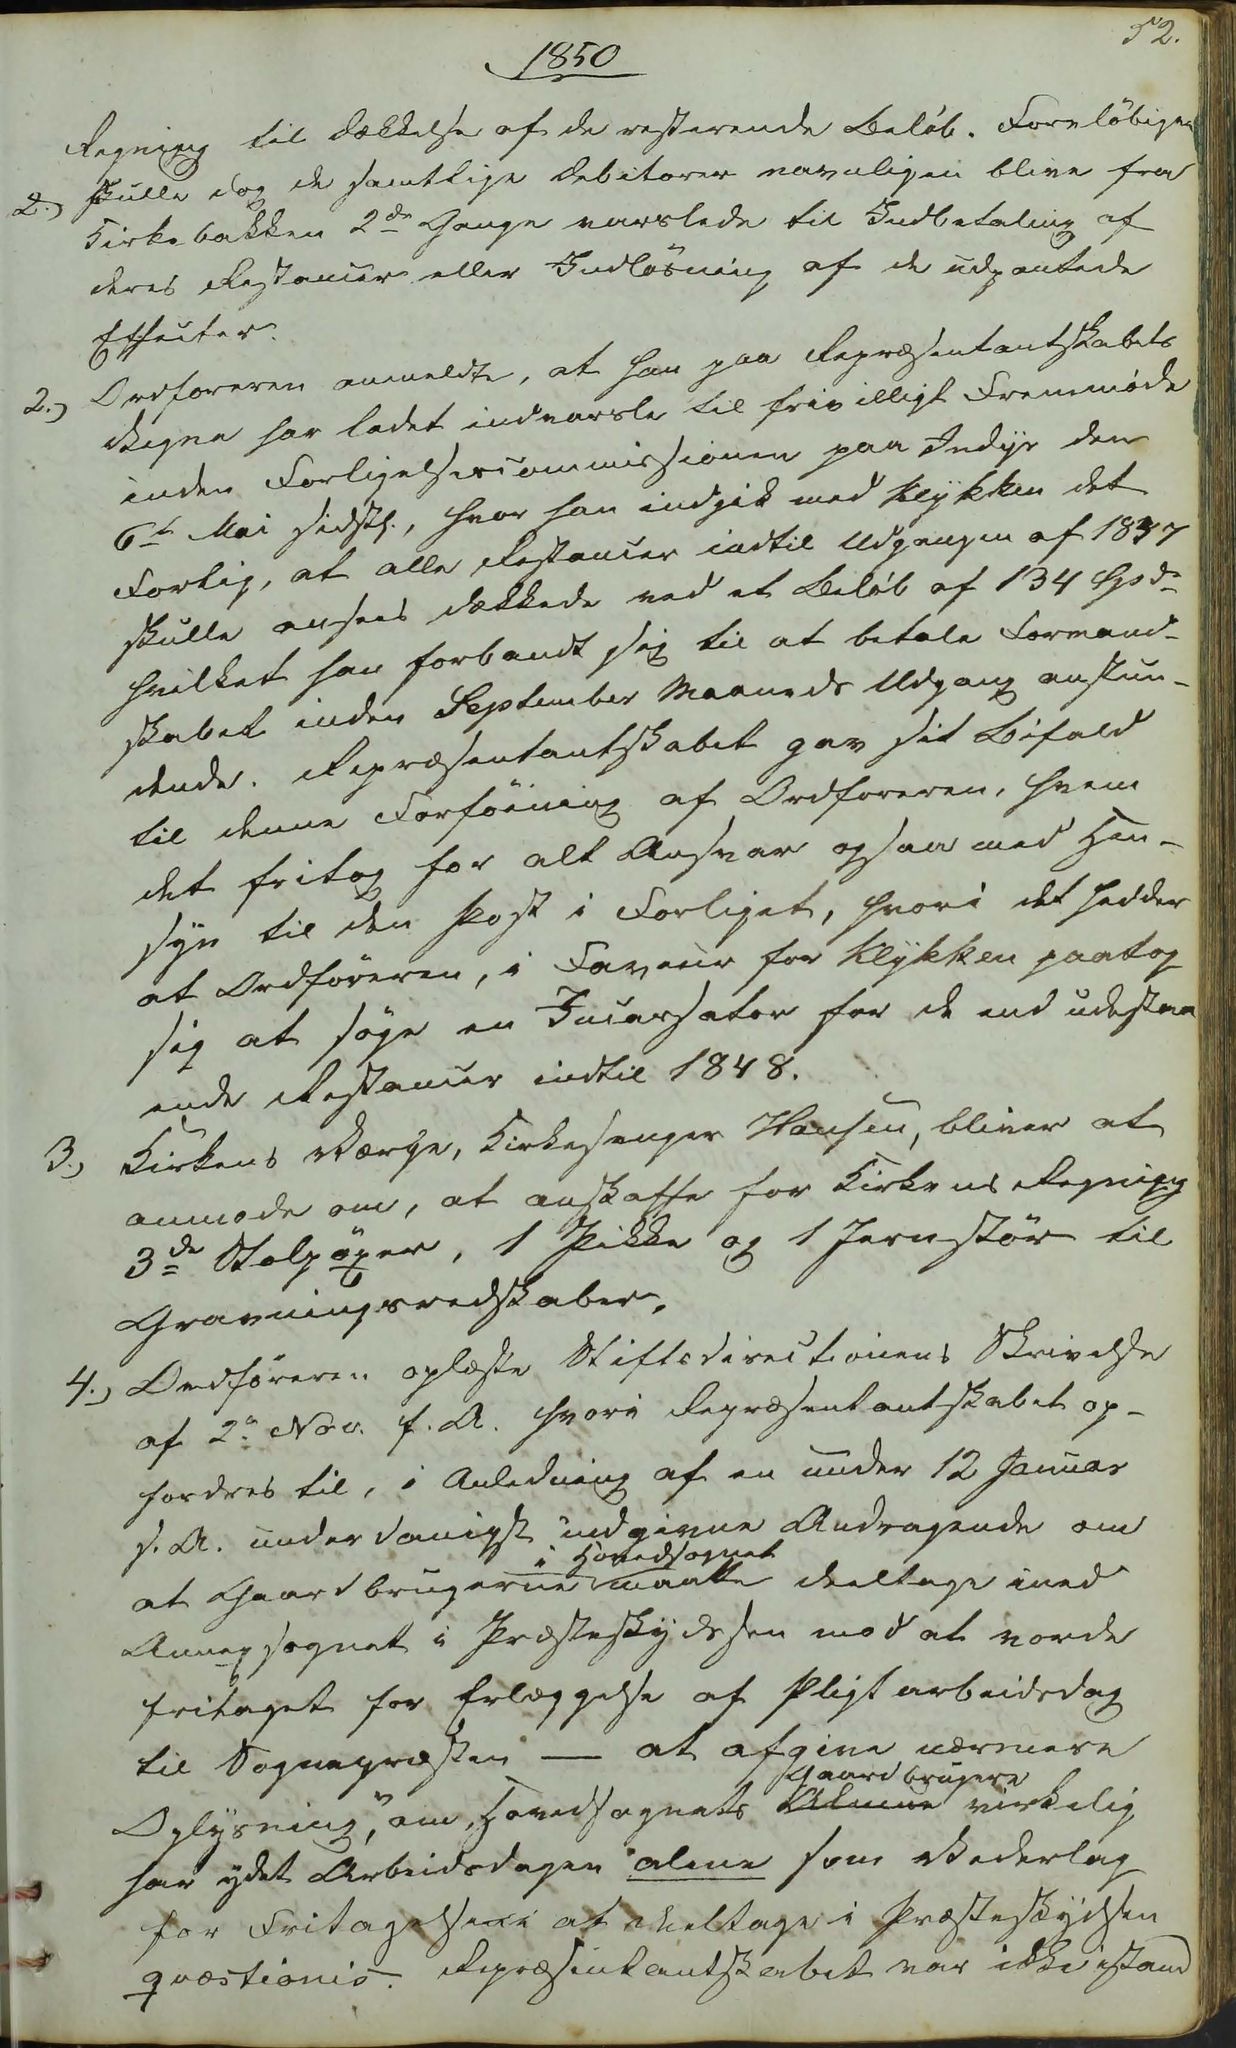 52.
1850
Regning til Dækkelse af de resterende Beløb. Foreløbigen
2.) skulle dog de samtlige Debitorer navnligen blive fra
Kirkebakken 2de Gange varslede til Indbetaling af
deres Restancer eller Indløsning af de udpantede
Effecter.
2.) Ordføreren anmeldte, at han paa Repræsentantskabets
Vegne har ladet indvarsle til frivilligt Fremmøde
inden Forligelsescommissionen paa Inderøe den
6te Mai sidstl., hvor han indgik med Klykken det
Forlig, at alle Restancer indtil Udgangen af 1847
skulle ansees dækkede ved et Beløb af 134 Spd
hvilket han forbandt sig til at betale Formand-
skabet inden September Maaneds Udgang anstun-
dende. Repræsentantskabet gav sit Bifald
til denne Forføining af Ordføreren, hvem
det fritog for alt Ansvar ogsaa med Hen-
syn til den Post i Forliget, hvori det hedder
at Ordføreren, i Faveur for Klykken paatog
sig at søge en Incassator for de end udestaa
ende Restancer indtil 1848.
3.) Kirkens Værge, Kirkesanger Hansen, bliver at
anmode om, at anskaffe for Kirkens Regning
3de Stolpøxer, 1 Pikke og 1 Jernstør til
Gravningsredskaber.
4.) Ordføreren oplæste Stiftsdirectionens Skrivelse
af 2n Nov. f. A. hvori Repræsentantskabet op-
fordres til, i Anledning af en under 12 Januar
s. A. underdanigst indgivne Andragende om
i Hovedsognet
at Gaardbrugerne maatte deeltage med
Annexsognet i Præsteskydsen mod at vorde
fritaget for Erlæggelse af Pligtarbeidsdag
til Sognepræsten — at afgive nærmere
Gaardbrugere
Oplysning, "om Hovedsognets Almue virkelig
har ydet Arbeidsdagen alene som Vederlag
for Fritagelse i at deeltage i Præsteskydsen
qvæstionis. Repræsentantskabet var ikke istand